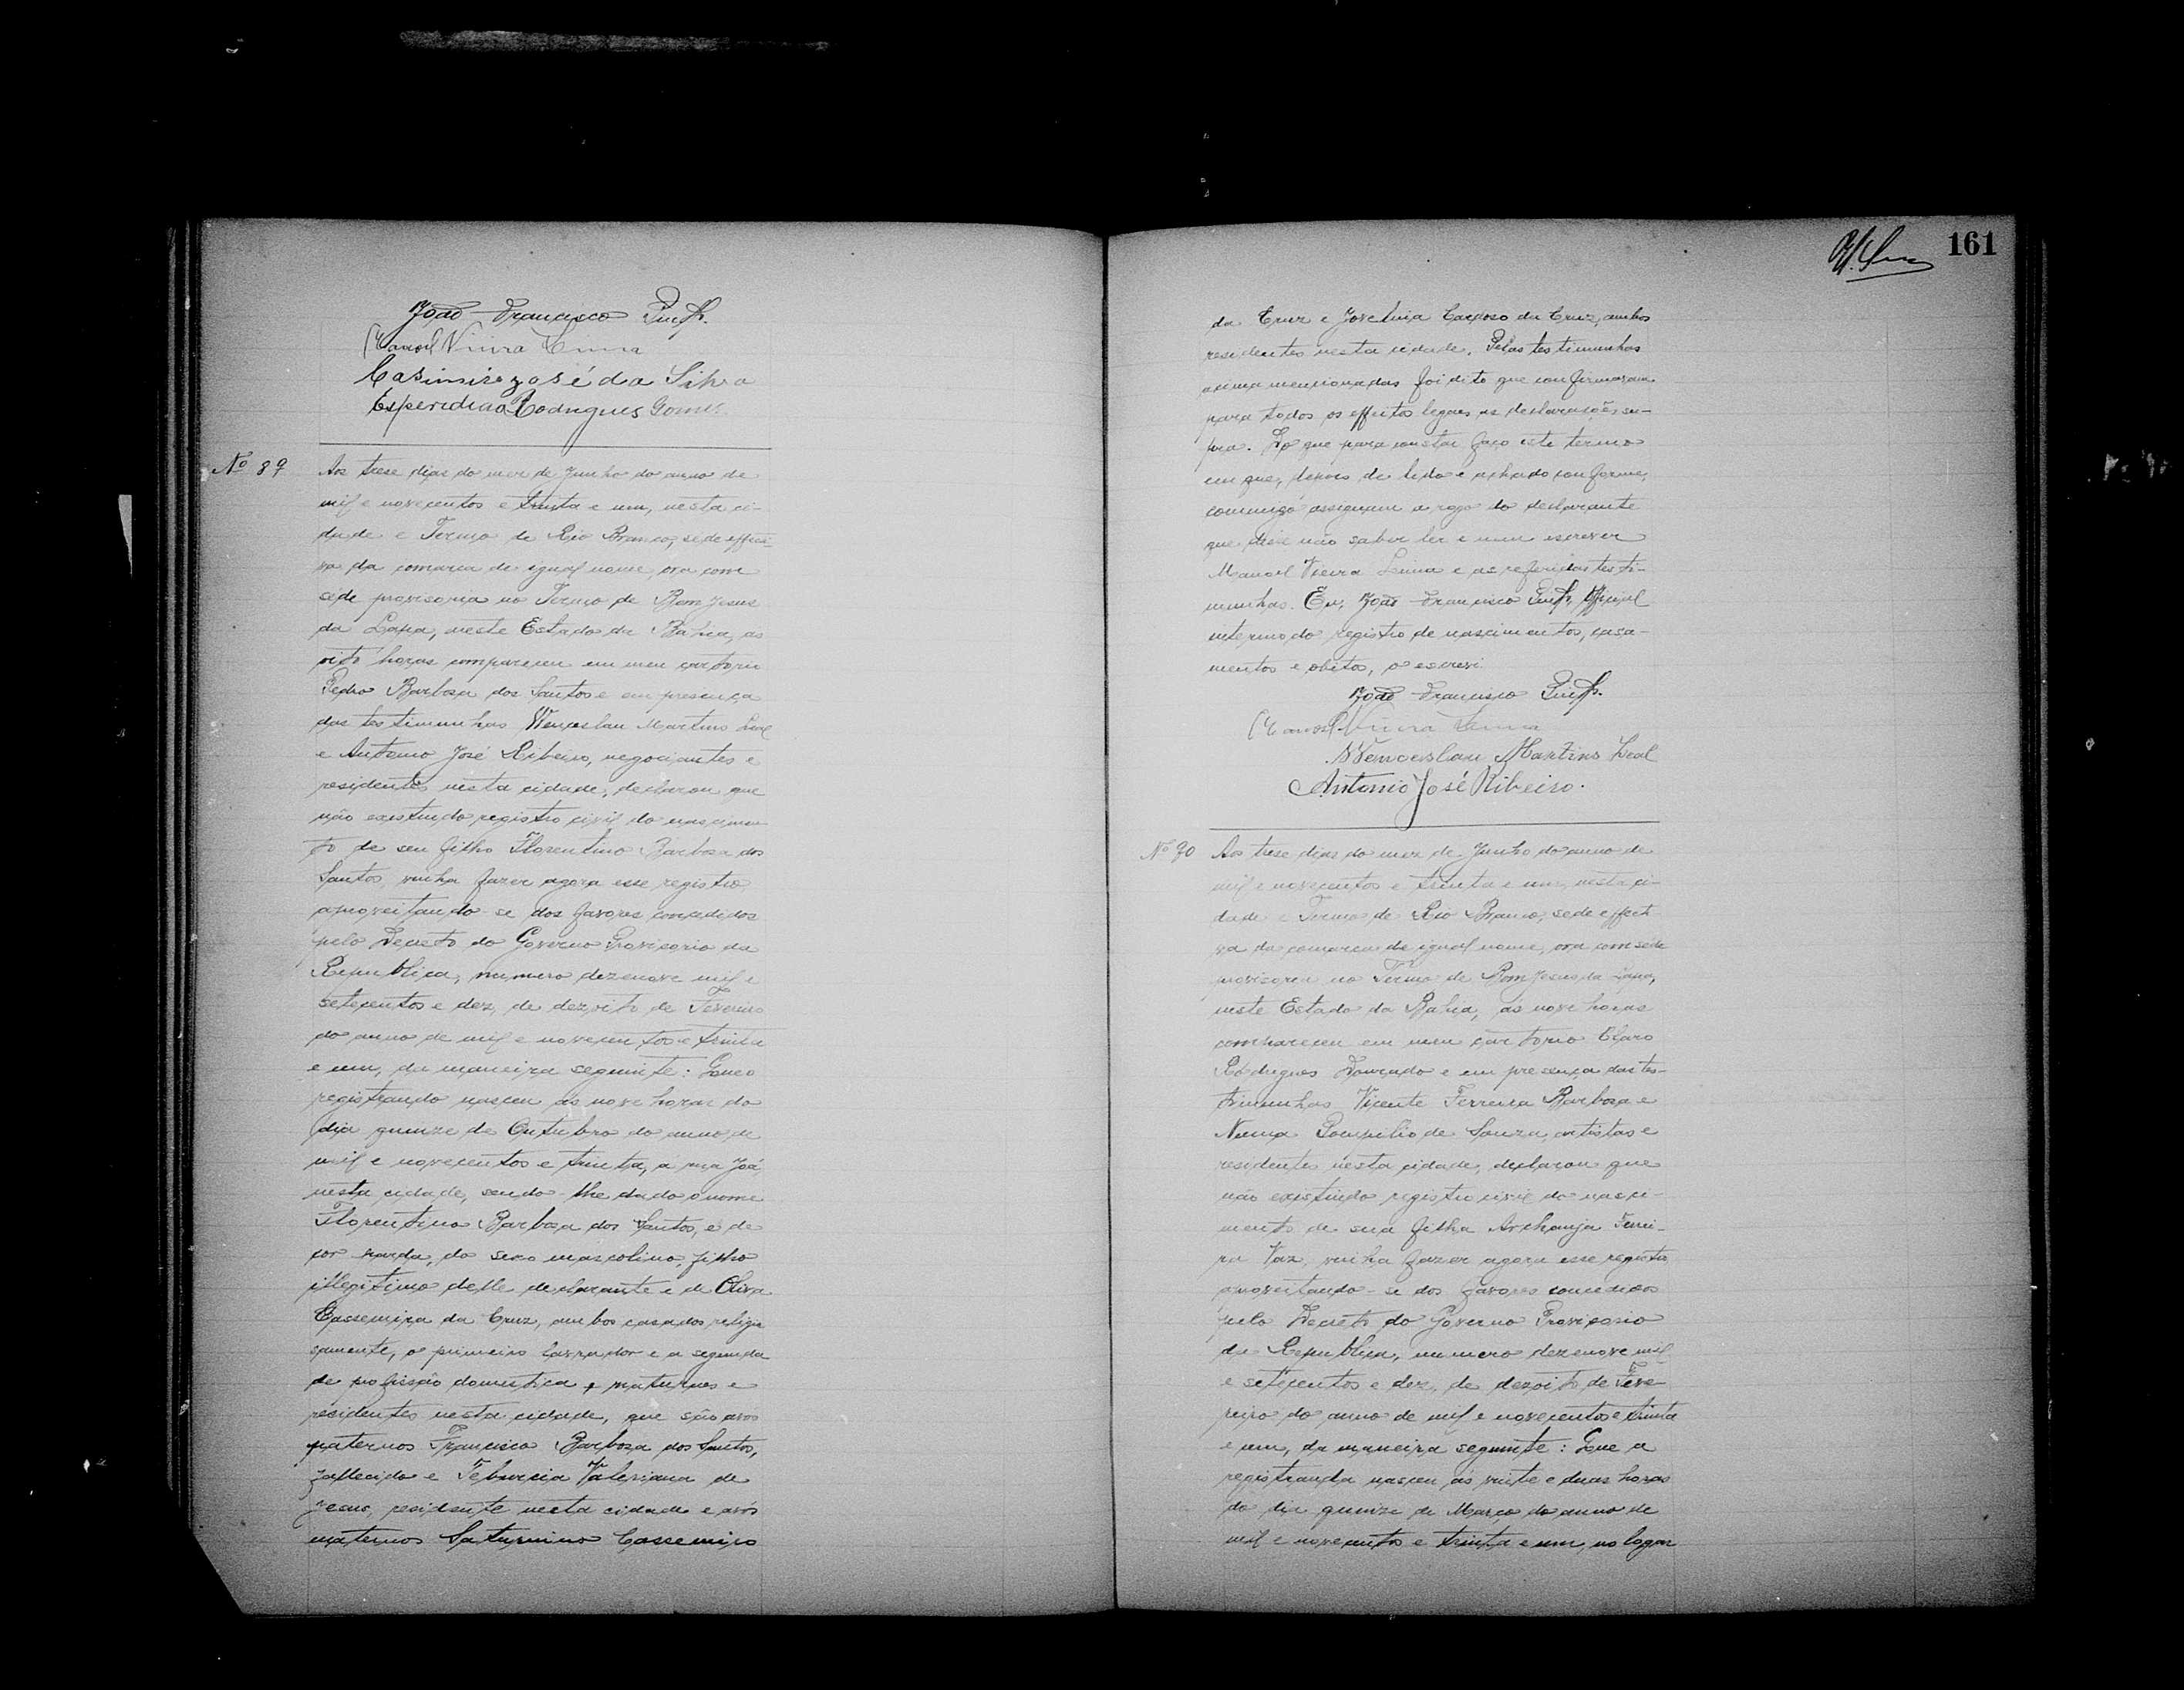 João Francisco
Manoel Vieira
Casimiro José da Silva
Esperidião Rodrigues Gomes
Nº 89
Aos trese dias do mez de Junho do anno de
mil e novecentos e trinta e um, nesta ci-
dade e Termo de Rio Branco, séde effecti-
va da comarca de igual nome, ora com
séde provisoria no Termo de Bom Jesus
da Lapa, neste Estado da Bahia, as
oito horas compareceu em meu cartorio
Pedro Barbosa dos Santos e em presença
das testimunhas Wenceslau Martins Leal
e Antonio José Ribeiro, negociantes e
residentes nesta cidade, declarou que
não existindo registro civil do nascimen
to de seu filho Florentino Barbosa dos
Santos, vinha fazer agora esse registro
aproveitando-se dos favores concedidos
pelo Decreto do Governo Provisorio da
Republica, numero dezenove mil e
setecentos e dez, de dezoito de Fevereiro
do anno de mil e novecentos e trinta
e um, da maneira seguinte: Que o
registrando nasceu as nove horas do
dia quinze de Outubro do anno de
mil e novecentos e trinta, á rua
nesta cidade, sendo-lhe dado o nome
Florentino Barbosa dos Santos, é de
cor parda, do sexo mascolino, filho
illegitimo delle declarante e de Oliva
Cassemira da Cruz, ambos casados religio
samente, o primeiro lavrador e a segunda
de profissão domestica e naturaes e
residentes nesta cidade, que são avos
paternos Francisco Barbosa dos Santos,
fallecido e Teburcia Valeriana de
Jesus, residente nesta cidade e avós
maternos Saturnino Cassemiro
161
da Cruz e Jovelina Cardoso da Cruz, ambos
residentes nesta cidade. Pelas testimunhas
acima mencionadas foi dito que confirmavam
para todos os effeitos legaes as declarações su-
pra. Do que para constar faço este termo
em que, depois de lido e achado conforme,
commigo assignam a rogo do declarante
que disse não saber ler e nem escrever
Manoel Vieira e as referidas testi-
munhas. Eu, João Francisco Official
interino do registro de nascimentos, casa-
mentos e obitos, o escrevi.
João Francisco
Manoel Vieira
Wenceslau Martins Leal
Antonio José Ribeiro.
Nº 90
Aos trese dias do mez de Junho do anno de
mil e novecentos e trinta e um, nesta ci-
dade e Termo de Rio Branco, séde effecti
va da comarca de igual nome, ora com séde
provisoria no Termo de Bom Jesus da Lapa,
neste Estado da Bahia, ás nove horas
compareceu em meu cartorio Claro
Rodrigues Dourado e em presença das tes-
timunhas Vicente Ferreira Barbosa e
Numa Pompilio de Souza, artistas e
residentes nesta cidade, declarou que
não existindo registro civil do nasci-
mento de sua filha Archanja Ferrei-
ra Vaz, vinha fazer agora esse registro
aproveitando-se dos favores concedidos
pelo Decreto do Governo Provisorio
da Republica, numero dezenove mil
e setecentos e dez, de dezoito de Feve-
reiro do anno de mil e novecentos e trinta
e um, da maneira seguinte: Que a
registranda nasceu ás vinte e duas horas
do dia quinze de Março do anno de
mil e novecentos e trinta e um, no logar